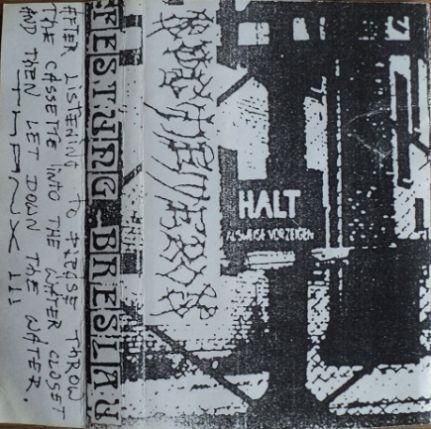 AFTER LISTENING TO PLEASE THROW
THE CASSETTE INTO THE WATER CLOSET
AND THEN LET DOWN THE WATER.
THANX !!!
FESTUNG BRESLAU
HALT
AUSWEISE VORZEIGEN